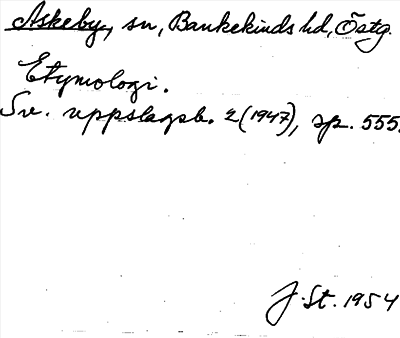 Askeby, sn, Bankekinds hd, Östg.
Etymologi.
Sv. uppslagsb. 2 (1947), sp. 555.
J. St. 1954